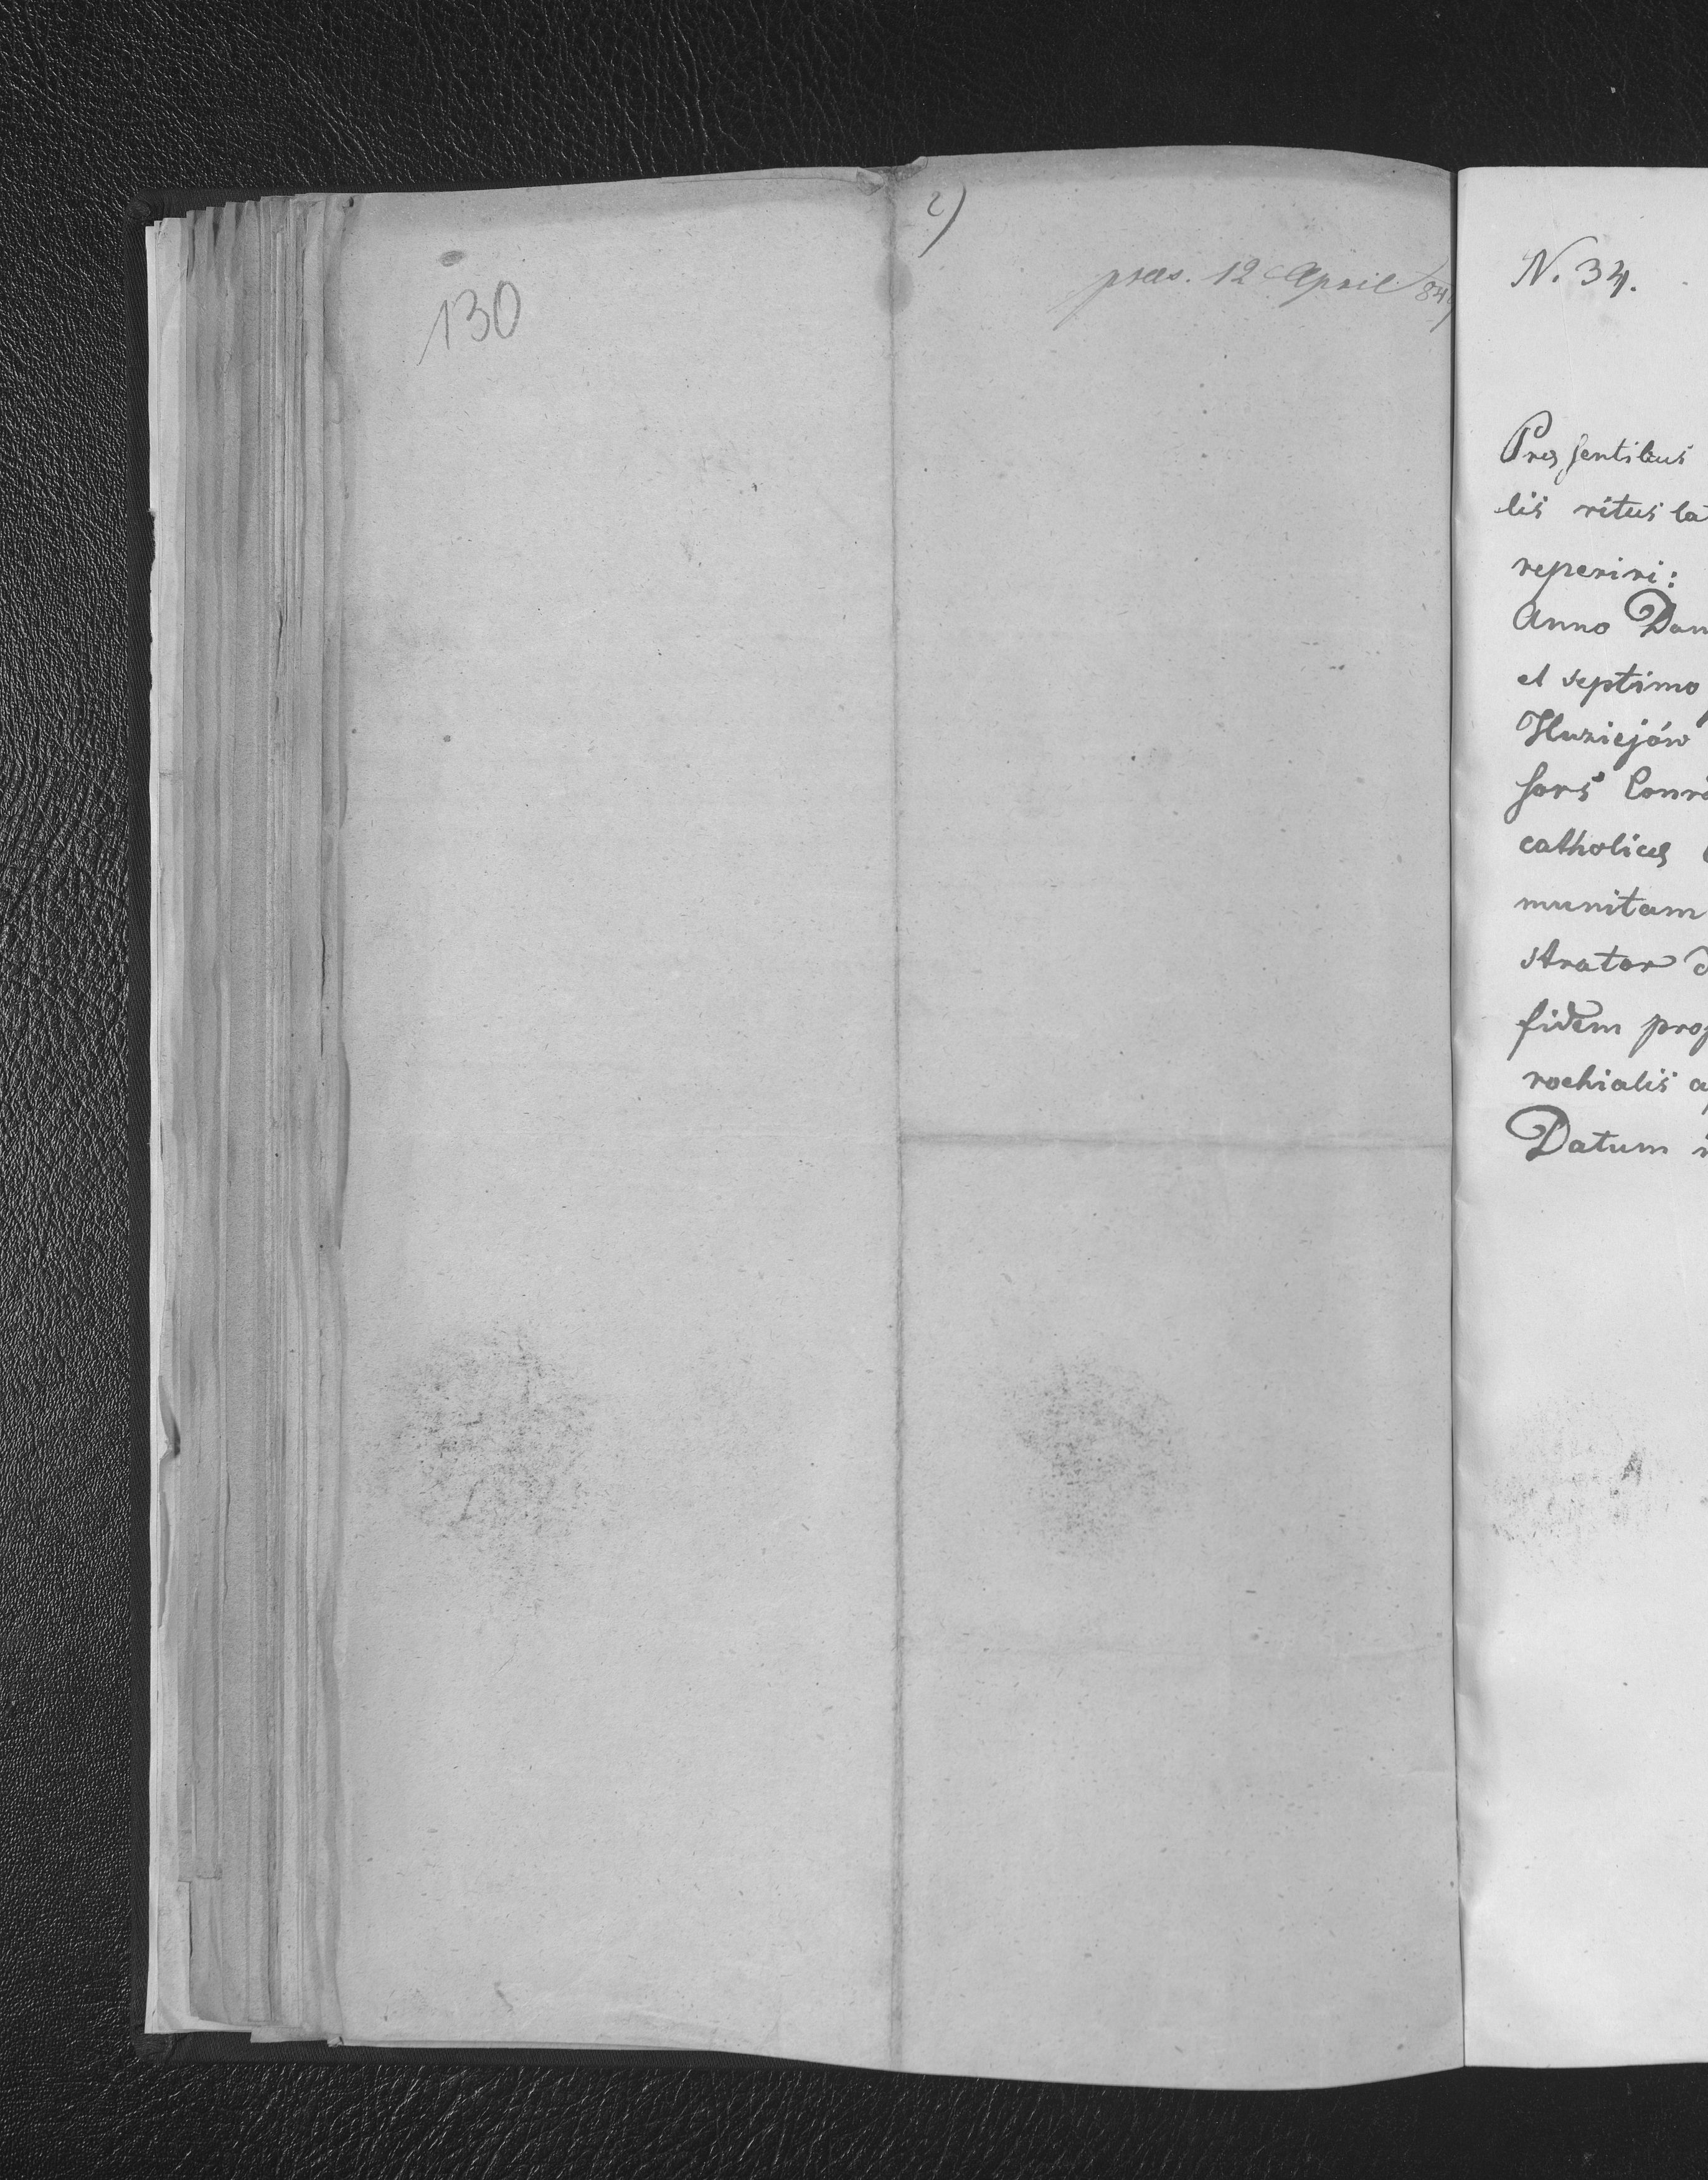 130
2)
præs. 12 April 849
N. 34.
Præsentibus
lis ritus la
reperiri:
Anno Dom
et septimo
Huziejów
sors Conra
catholicæ
munitam
strator d
fidem prop
rochialis ap
Datum i